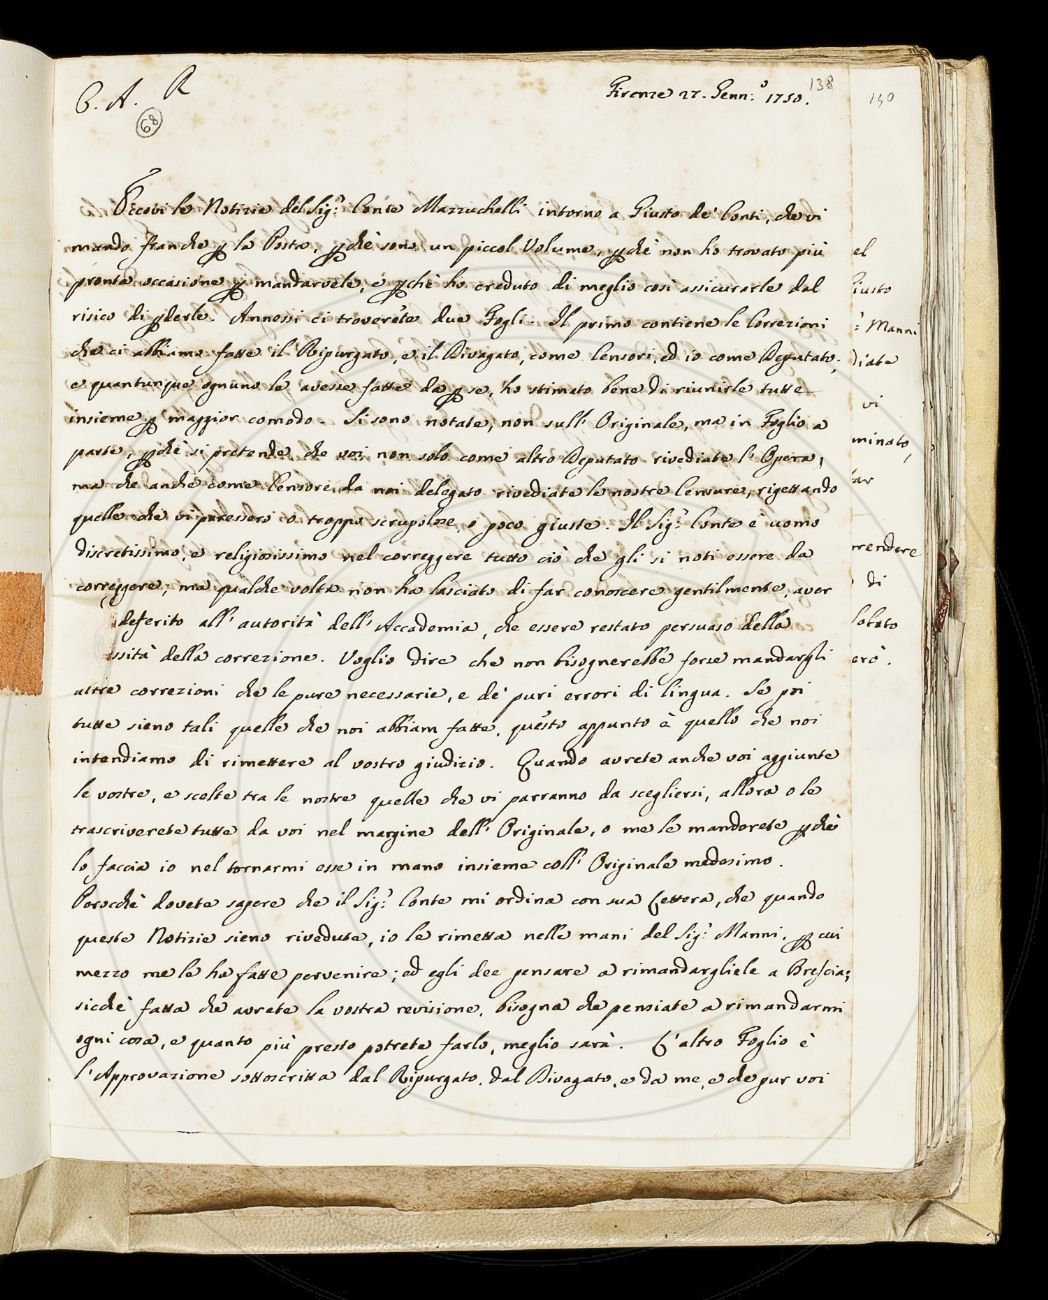 C. A. R
68
Firenze 27. Genn:º 1750.
138
Eccovi le Notizie del Sig:r Conte Mazzuchelli intorno a Giusto de' Conti, che vi
mando franche p la Posta, pchè sono un piccol Volume, pchè non ho trovato più
pronta occasione p mandarvele, e pchè ho creduto di meglio così assicurarle dal
risico di pderle. Annessi ci troverete due Fogli. Il primo contiene le Correzioni
che ci abbiamo fatte il Ripurgato, e il Divagato, come Censori, ed io come Deputato;
e quantunque ognuno le avesse fatte da p se, ho stimato bene di riunirle tutte
insieme p maggior comodo. Si sono notate, non sull' Originale, ma in Foglio a
parte, pchè si pretende che voi non solo come altro Deputato rivediate l' Opera,
ma che anche come Censore da noi delegato rivediate le nostre Censure, rigettando
quelle che vi paressero o troppo scrupolose, o poco giuste. Il Sig:r Conte è uomo
discretissimo, e religiosissimo nel correggere tutto ciò che gli si noti essere da
correggere; ma qualche volta non ha lasciato di far conoscere gentilmente, aver
deferito all' autorità dell' Accademia, che essere restato persuaso della
ssità della correzione. Voglio dire che non bisognerebbe forse mandargli
altre correzioni che le pure necessarie, e de' puri errori di lingua. Se poi
tutte sieno tali quelle che noi abbiam fatte, questo appunto è quello che noi
intendiamo di rimettere al vostro giudizio. Quando avrete anche voi aggiunte
le vostre, e scelte tra le nostre quelle che vi parranno da scegliersi, allora o le
trascriverete tutte da voi nel margine dell' Originale, o me le manderete pchè
lo faccia io nel tornarmi esse in mano insieme coll' Originale medesimo.
Perocchè dovete sapere che il Sig:r Conte mi ordina con sua Lettera, che quando
queste Notizie sieno rivedute, io le rimetta nelle mani del Sig:r Manni, p cui
mezzo me le ha fatte pervenire; ed egli dee pensare a rimandargliele a Brescia;
sicchè fatta che avrete la vostra revisione, bisogna che pensiate a rimandarmi
ogni cosa, e quanto più presto potrete farlo, meglio sarà. L' altro Foglio è
l' Approvazione sottoscritta dal Ripurgato, dal Divagato, e da me, e che pur voi
el
iusto
Manni
diate
vi
minato,
rendere
di